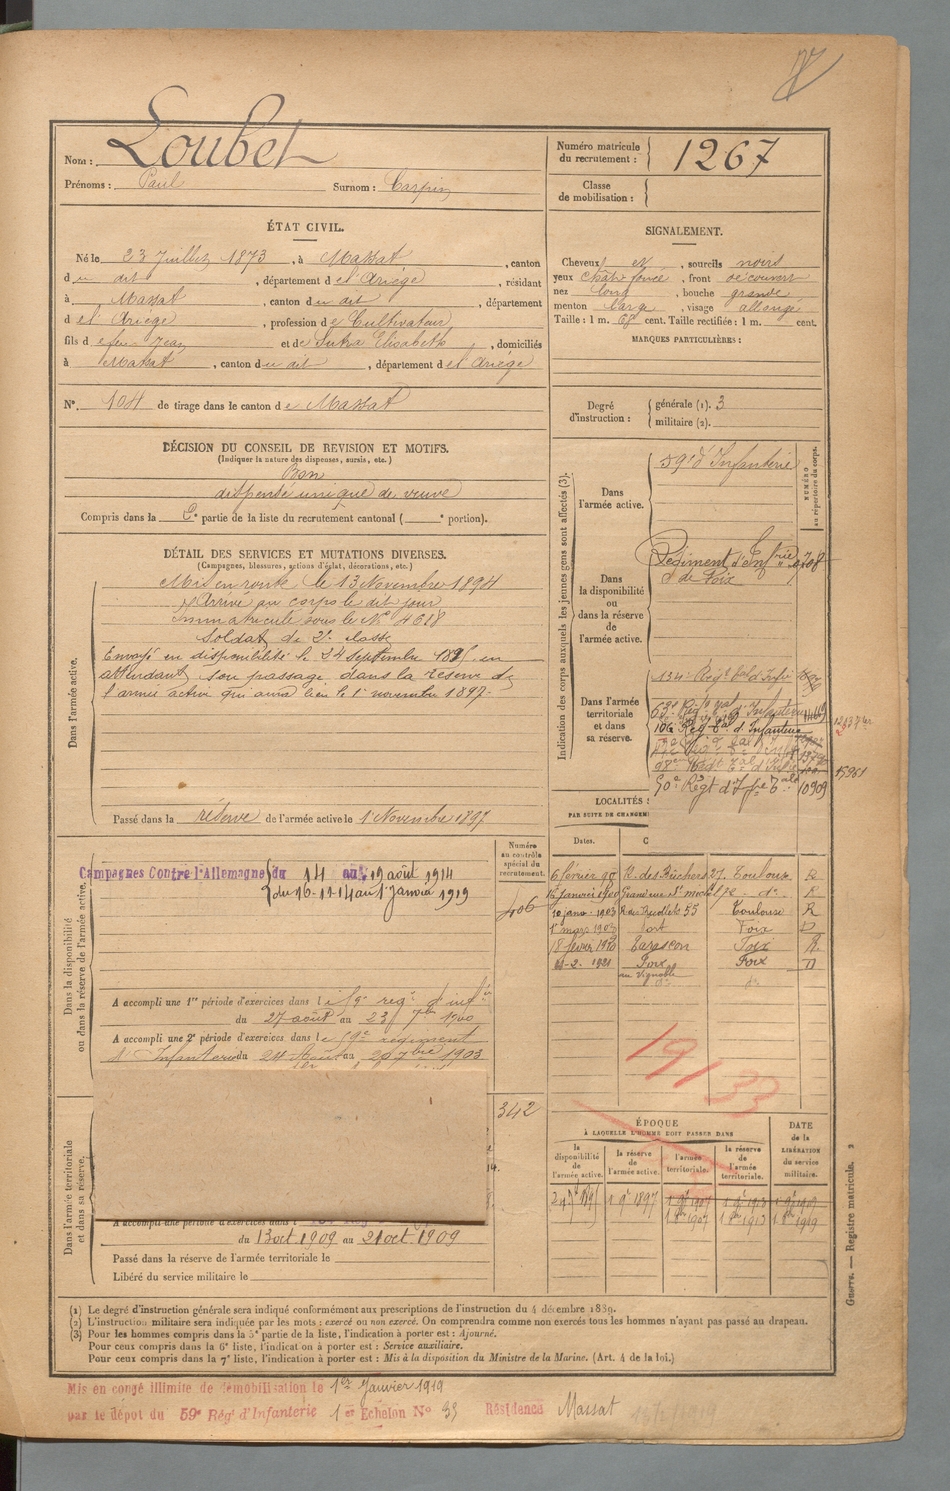 Nom : Loubet
Prénoms : Paul Surnom :
Numéro matricule du recrutement : 1267
Classe de mobilisation :
ÉTAT CIVIL.
Né le 23 Juillet 1873, à Massat, canton
du dit, département de l'Ariège, résidant
à Massat, canton du dit, département
de l'Ariège, profession de Cultivateur
fils de feu Jean et de Sutra Elisabeth, domiciliés
à Massat, canton du dit, département de l'Ariège
N°. 104 de tirage dans le canton de Massat
SIGNALEMENT.
Cheveux et, sourcils noirs
yeux chât. foncé, front découvert
nez long, bouche grande
menton large, visage allongé
Taille : 1 m. 68 cent. Taille rectifiée : 1 m. cent.
MARQUES PARTICULIÈRES :
Degré d'instruction : générale (1). 3
militaire (2).
DÉCISION DU CONSEIL DE REVISION ET MOTIFS.
(Indiquer la nature des dispenses, sursis, etc.)
Bon
dispensé unique de veuve
Compris dans la partie de la liste du recrutement cantonal ( portion).
DÉTAIL DES SERVICES ET MUTATIONS DIVERSES.
(Campagnes, blessures, actions d'éclat, décorations, etc.)
Dans l'armée active.
Mis en route le 13 Novembre 1894
Arrivé au corps le dit jour
immatriculé sous le N° 4618
Soldat de 2e classe
Envoyé en disponibilité le 24 septembre 1895 en
attendant son passage dans la réserve de
l'armée active qui aura lieu le 1er novembre 1897.
Passé dans la réserve de l'armée active le 1 Novembre 1897
Indication des corps auxquels les jeunes gens sont affectés (3).
NUMÉRO au répertoire du corps.
Dans l'armée active.
59e d'Infanterie
Dans la disponibilité ou dans la réserve de l'armée active.
Régiment d'Infrie
de Foix
Dans l'armée territoriale et dans sa réserve.
134e Régt tal d'Infie
63e Régt tal d'Infanterie
106e Rég tal d'Infanterie
50e Régt d'Ifie Tale 10909
15961
LOCALITÉS
PAR SUITE DE CHANGEM
Dates.
6 février 98 R. des Bûchers 27. Toulouse R
Grande rue St Michel do R
10 janv. 1903 R des Récollets 55 Toulouse R
1er mars 1907 Foix D
18 février 1910 Tarascon Foix R
2. 1921 Foix Foix D
au Vignoble do
1933
Dans la disponibilité ou dans la réserve de l'armée active.
Numéro au contrôle spécial du recrutement.
406
Campagnes Contre l'Allemagne du 14 au 19 août 1914
du 16-11-14 au 1er Janvier 1919
A accompli une 1re période d'exercices dans le 59e régt d'infie
du 27 août au 23 7bre 1900
A accompli une 2e période d'exercices dans le 59e régiment
d'Infanterie du 24 Août au 20 7bre 1903
Dans l'armée territoriale et dans sa réserve.
342
A accompli une période d'exercices dans l
du 13 oct 1909 au 21 oct 1909
Passé dans la réserve de l'armée territoriale le
Libéré du service militaire le
ÉPOQUE
À LAQUELLE L'HOMME DOIT PASSER DANS
DATE de la LIBÉRATION du service militaire.
la disponibilité de l'armée active.
la réserve de l'armée active.
l'armée territoriale.
la réserve de l'armée territoriale.
1 9bre 1897
(1) Le degré d'instruction générale sera indiqué conformément aux prescriptions de l'instruction du 4 décembre 1889.
(2) L'instruction militaire sera indiquée par les mots : exercé ou non exercé. On comprendra comme non exercés tous les hommes n'ayant pas passé au drapeau.
(3) Pour les hommes compris dans la 5e partie de la liste, l'indication à porter est : Ajourné.
Pour ceux compris dans la 6e liste, l'indication à porter est : Service auxiliaire.
Pour ceux compris dans la 7e liste, l'indication à porter est : Mis à la disposition du Ministre de la Marine. (Art. 4 de la loi.)
Guerre. — Registre matricule. 2
Mis en congé illimité de démobilisation le 1er Janvier 1919
par le dépôt du 59e Régt d'Infanterie 1er Echelon No 33 Résidence Massat